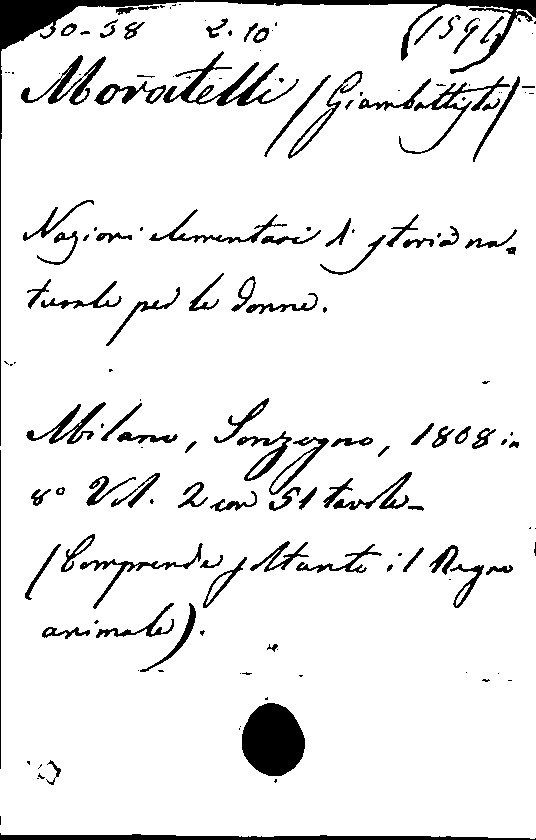 30-38 2.10 (1594)
Moratelli (Giambattista)
Nozioni elementari di storia na-
turale per le donne.
Milano, Sonzogno, 1808 in
8° Vol. 2 con 51 tavole_
(Comprende soltanto il Regno
animale).